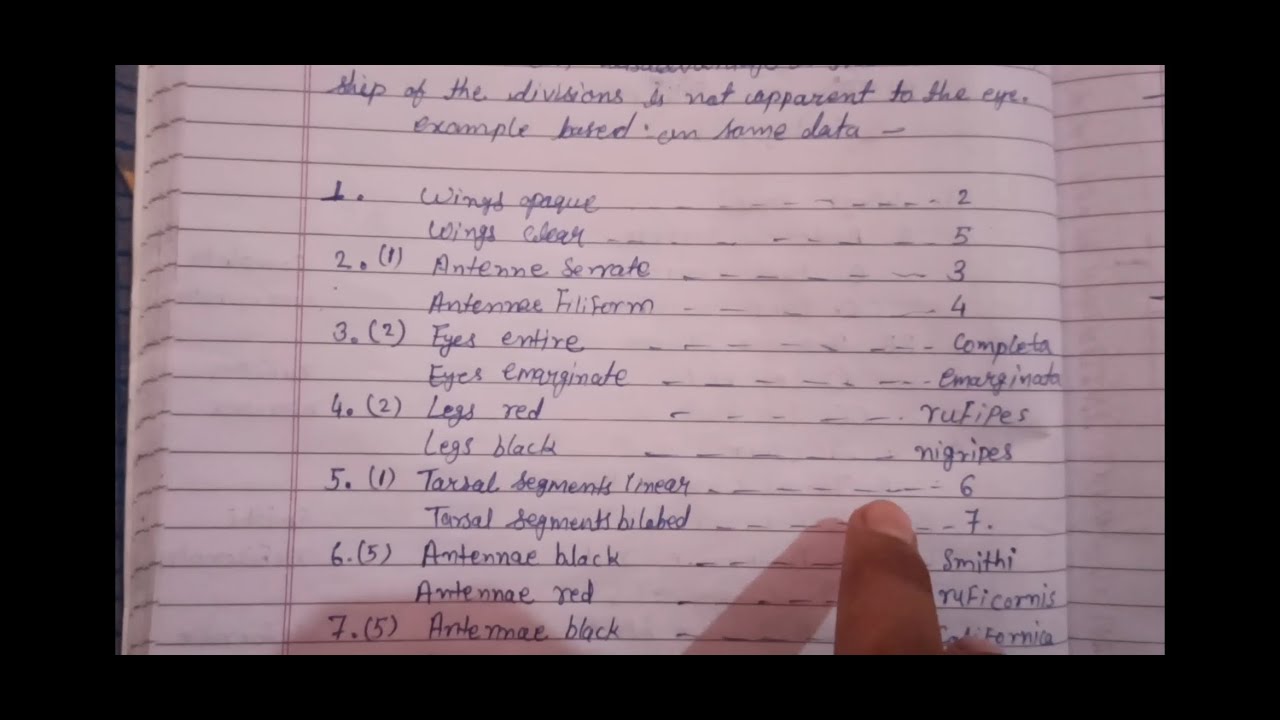 ship of the divisions is not apparent to the eye.
example based on same data -
1. Wings opaque ------- 2
Wings clear ------- 5
2. (1) Antenne Serrate ------ 3
Antennae Filiform ------ 4
3. (2) Eyes entire ------- Completa
Eyes emarginate ------- emarginata
4. (2) Legs red ------ rufipes
Legs black ------ nigripes
5. (1) Tarsal segments linear ------- 6
Tarsal segments bilabed ------ 7.
6. (5) Antennae black ------ Smithi
Antennae red ------ ruficornis
7. (5) Antennae black ------ Californica